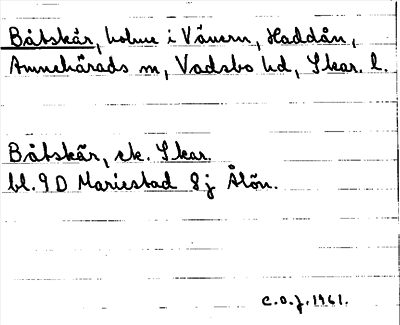 Båtskär, holme i Vänern, Haddån,
Amnehärads sn, Vadsbo hd, Skar. l.
Båtskär, ek. Skar.
bl. 9 D Mariestad 8j Ålön.
C.O.J. 1961.